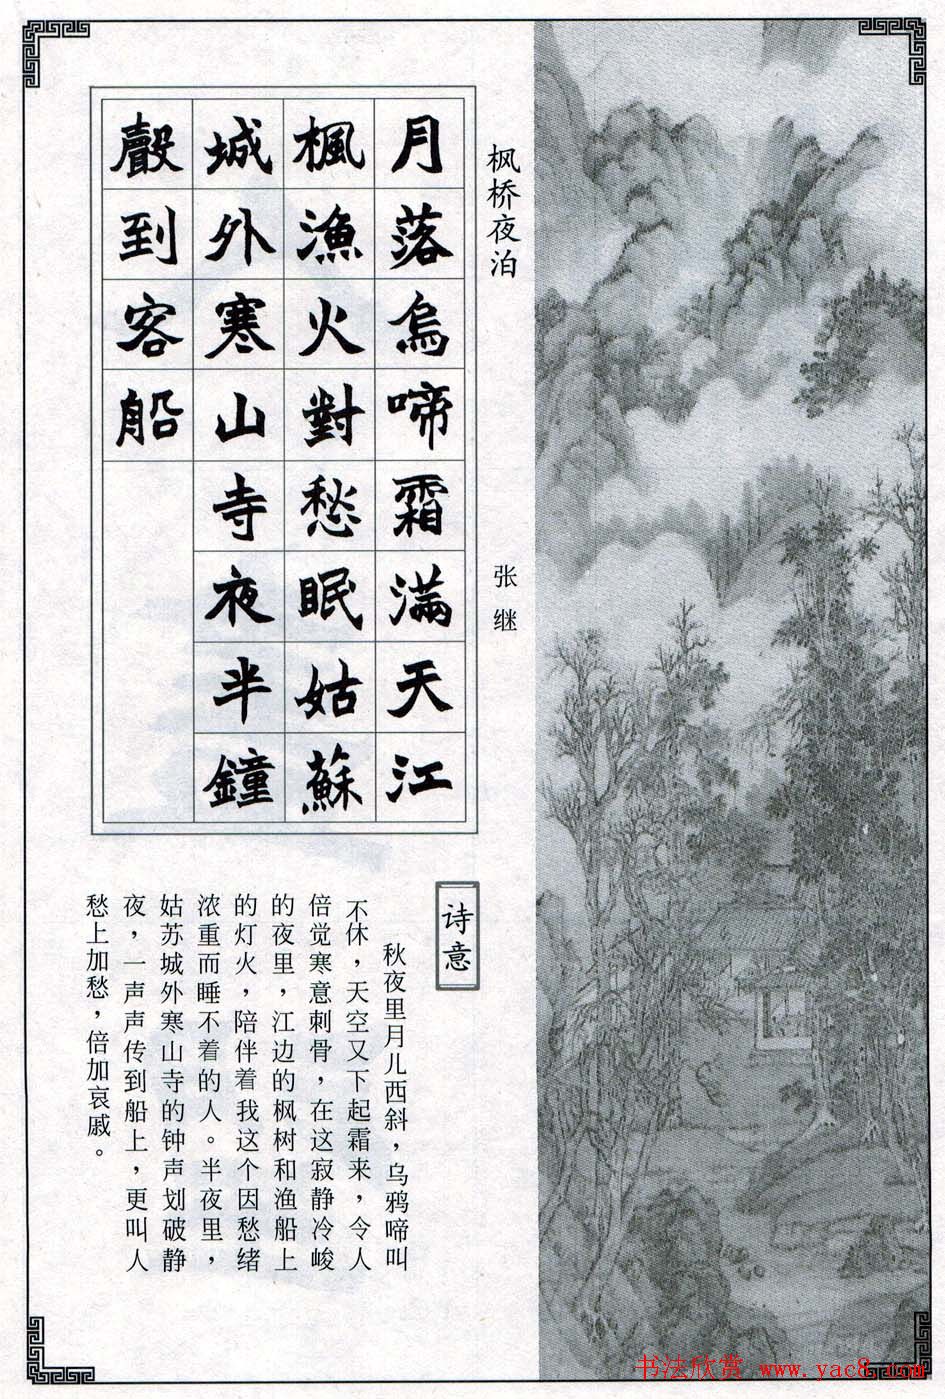 枫桥夜泊
张继
月落烏啼霜滿天江
楓漁火對愁眠姑蘇
城外寒山寺夜半鐘
聲到客船
诗意
秋夜里月儿西斜，乌鸦啼叫
不休，天空又下起霜来，令人
倍觉寒意刺骨，在这寂静冷峻
的夜里，江边的枫树和渔船上
的灯火，陪伴着我这个因愁绪
浓重而睡不着的人。半夜里，
姑苏城外寒山寺的钟声划破静
夜，一声声传到船上，更叫人
愁上加愁，倍加哀戚。
书法欣赏 www.yac8.com